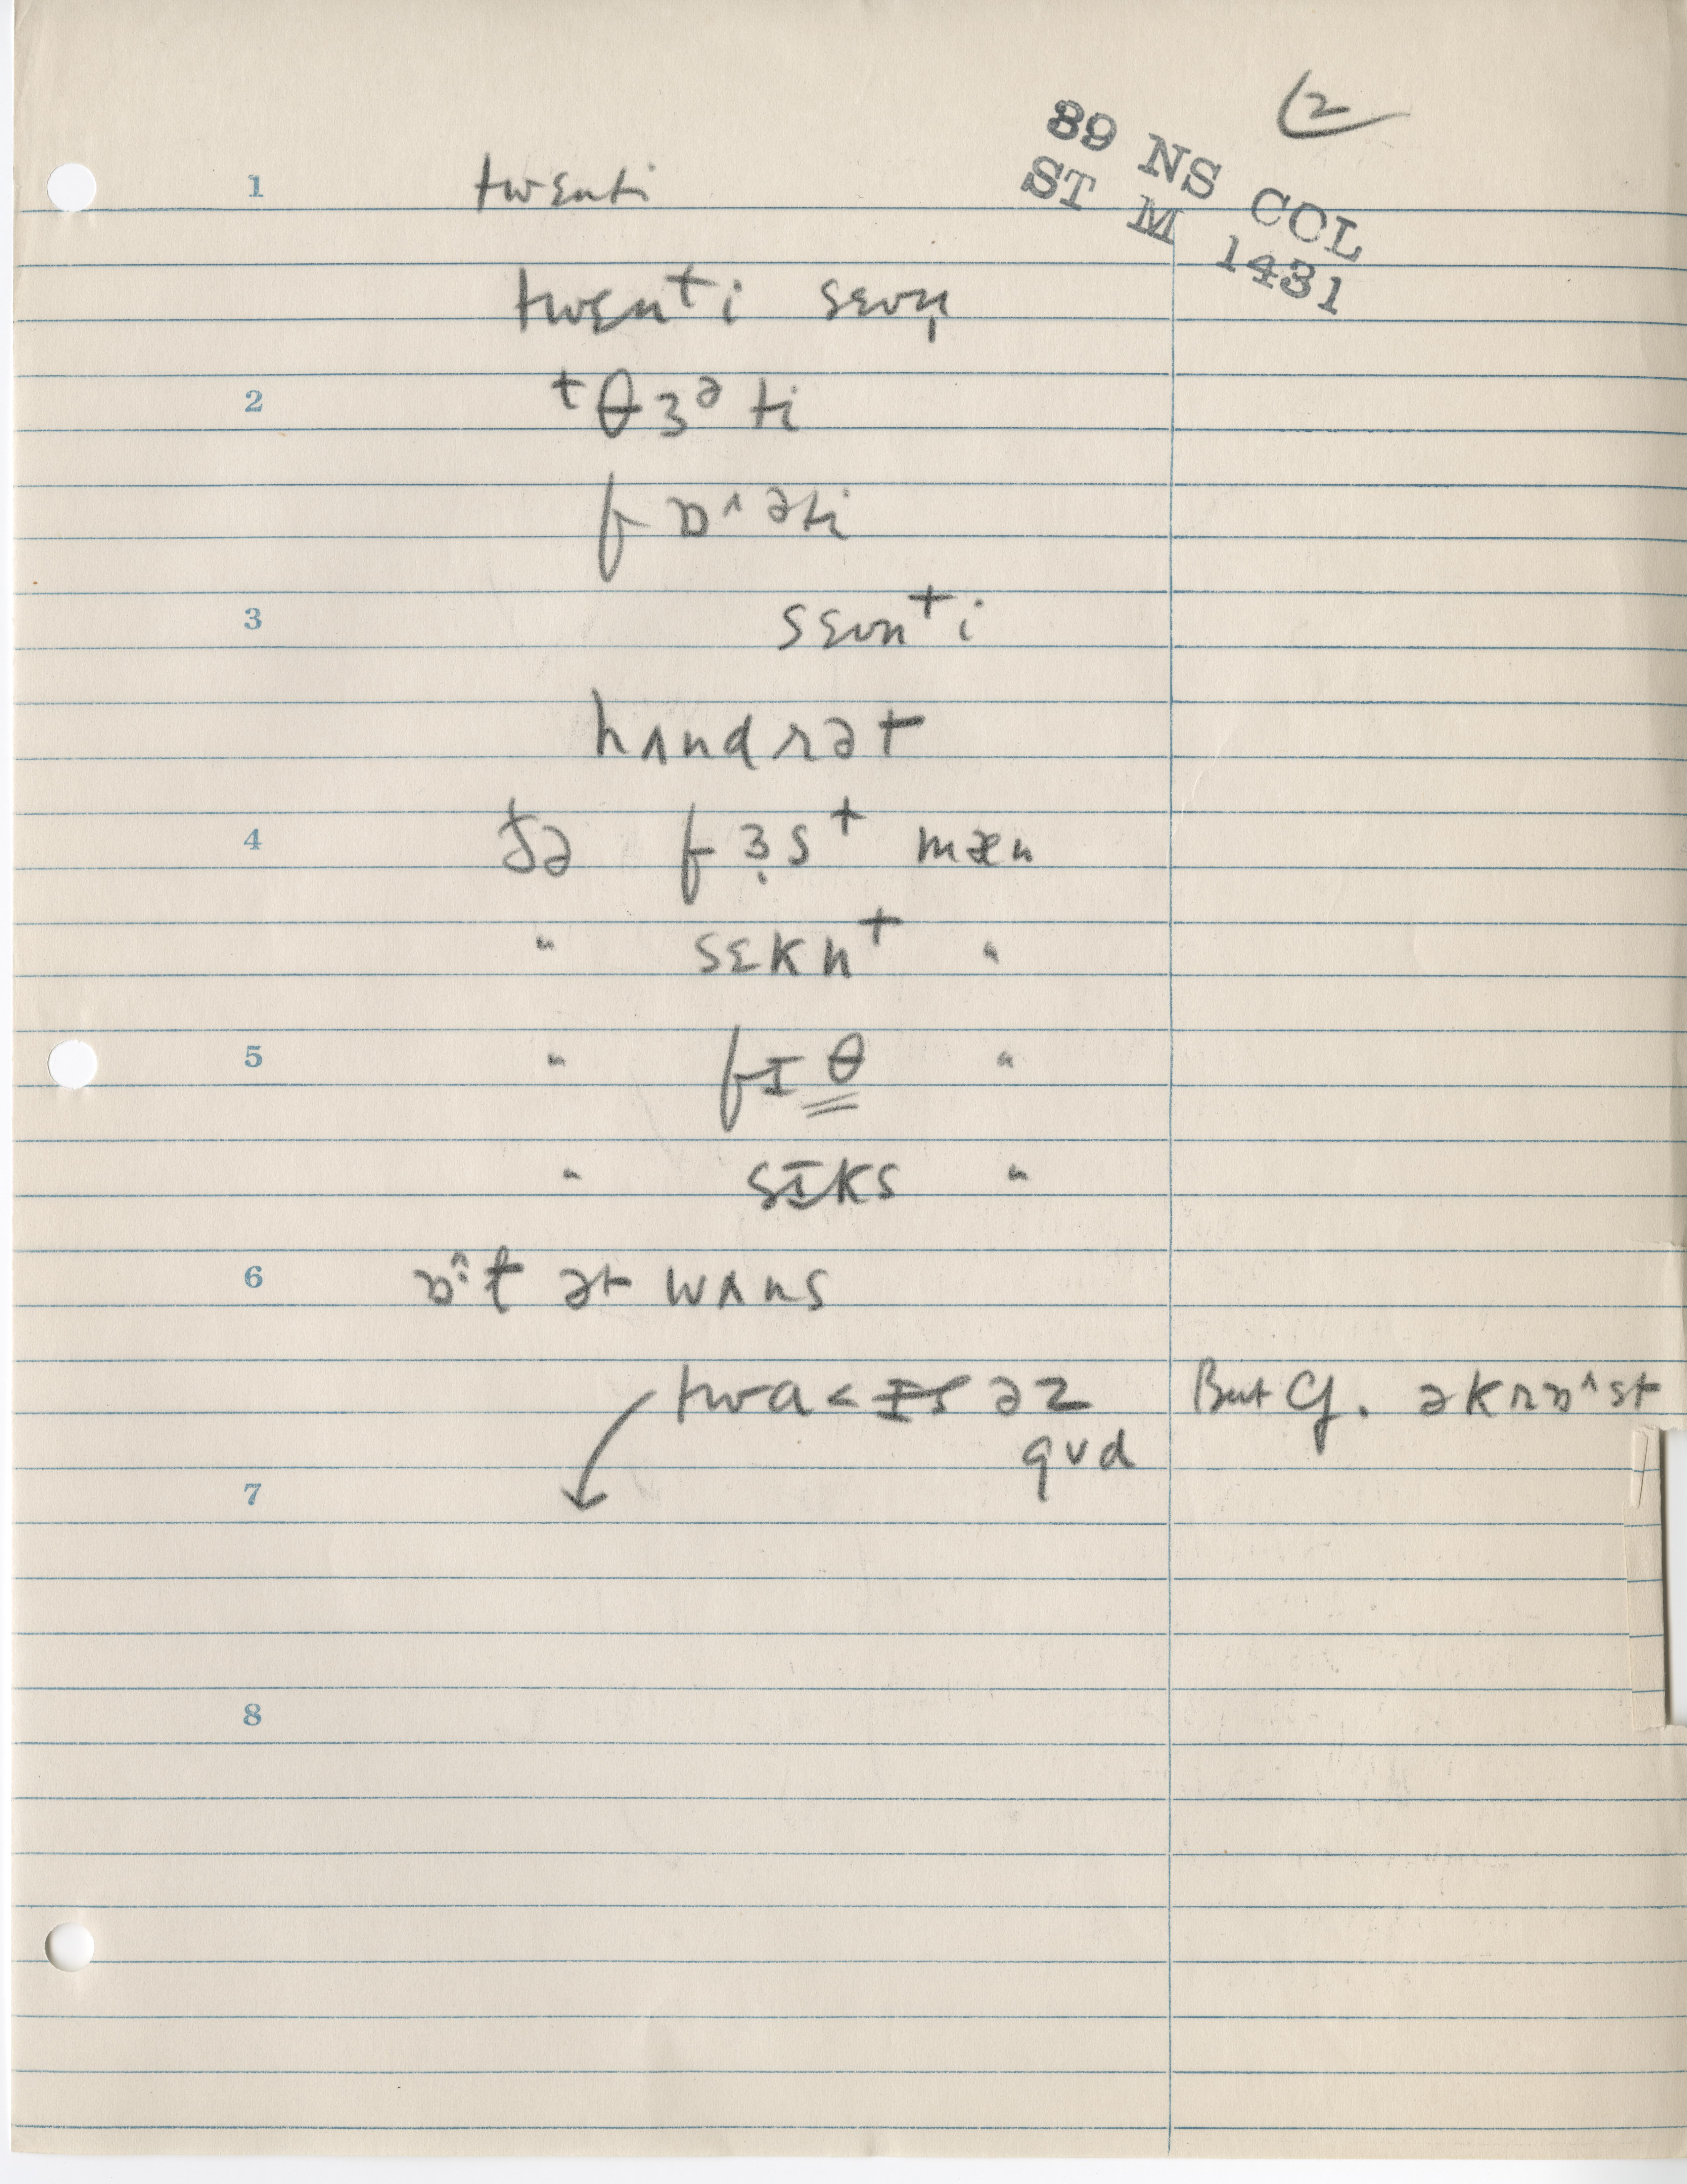 (2
89 NS COL
ST M 1431
1 twɛnti
twɛnti sɛvn̩
2 tθɜəti
fɒ^əti
3 sɛvnti
hʌndrət
4 ðə fɜ̣st mæn
" sɛknt "
5 " fɪθ "
" sɪks "
6 ɒ^:t ət wʌns
twa<ɪs əz gud
But cf. əkrɒ^st
7
8